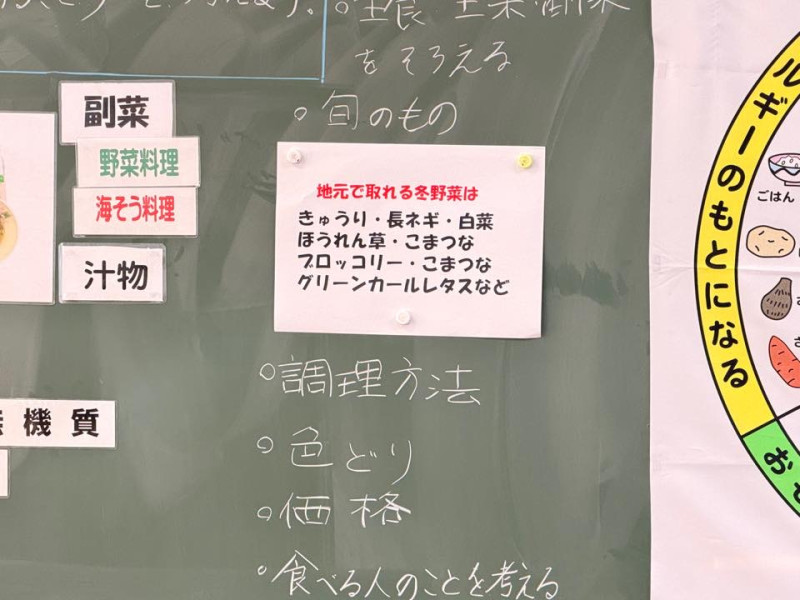 ○主食 主菜・副菜
をそろえる
○旬のもの
副菜
野菜料理
海そう料理
汁物
地元で取れる冬野菜は
きゅうり・長ネギ・白菜
ほうれん草・こまつな
ブロッコリー・こまつな
グリーンカールレタスなど
○調理方法
機質
○色どり
○価格
○食べる人のことを考える
ルギーのもとになる
ごはん